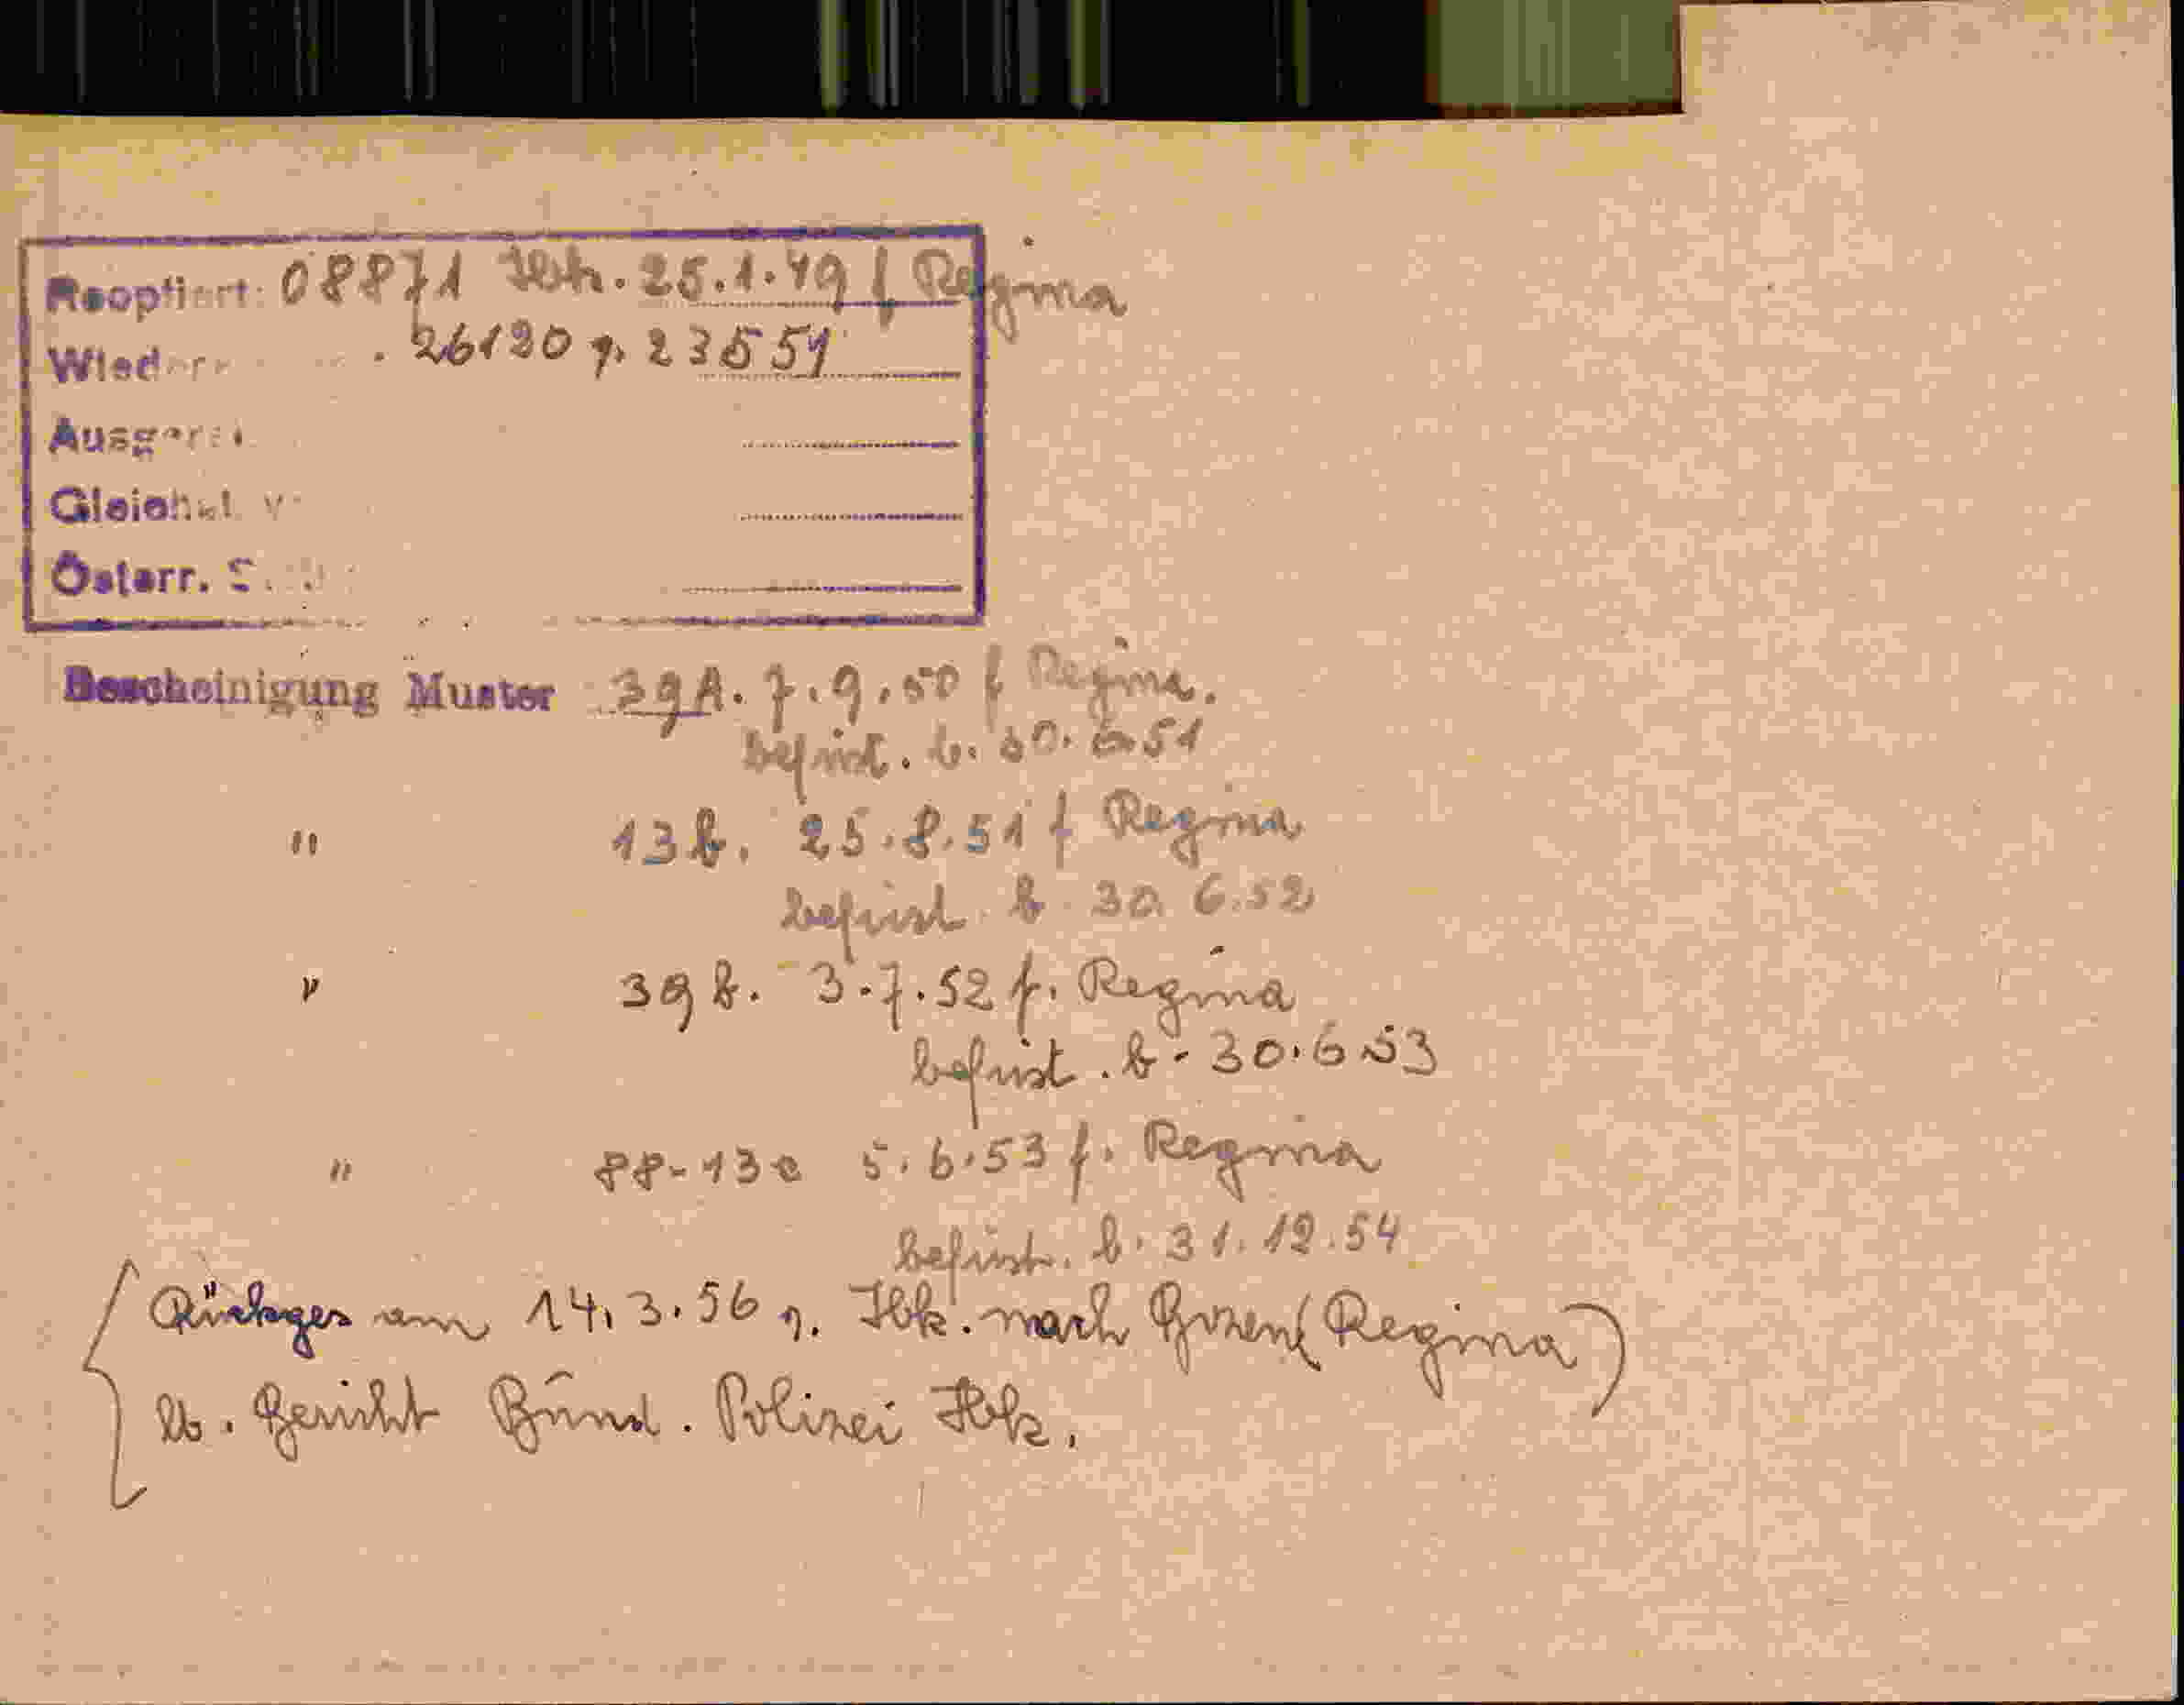 Reoptiert: 08871 Ibk. 25.1.49 f Regina
26120 v. 23551
Österr.
Bescheinigung Muster 39A. 7.9.50 f Regina.
befrist. b. 30.6.51
" 13b. 25.8.51 f Regina
befrist b. 30.6.52
" 39b. 3.7.52 f. Regina
befrist. b. 30.6.53
" 88-13c 5.6.53 f. Regina
befrist. b. 31.12.54
Rückges am 14.3.56 v. Ibk. nach Bozen (Regina)
lt. Bericht Bund. Polizei Ibk.